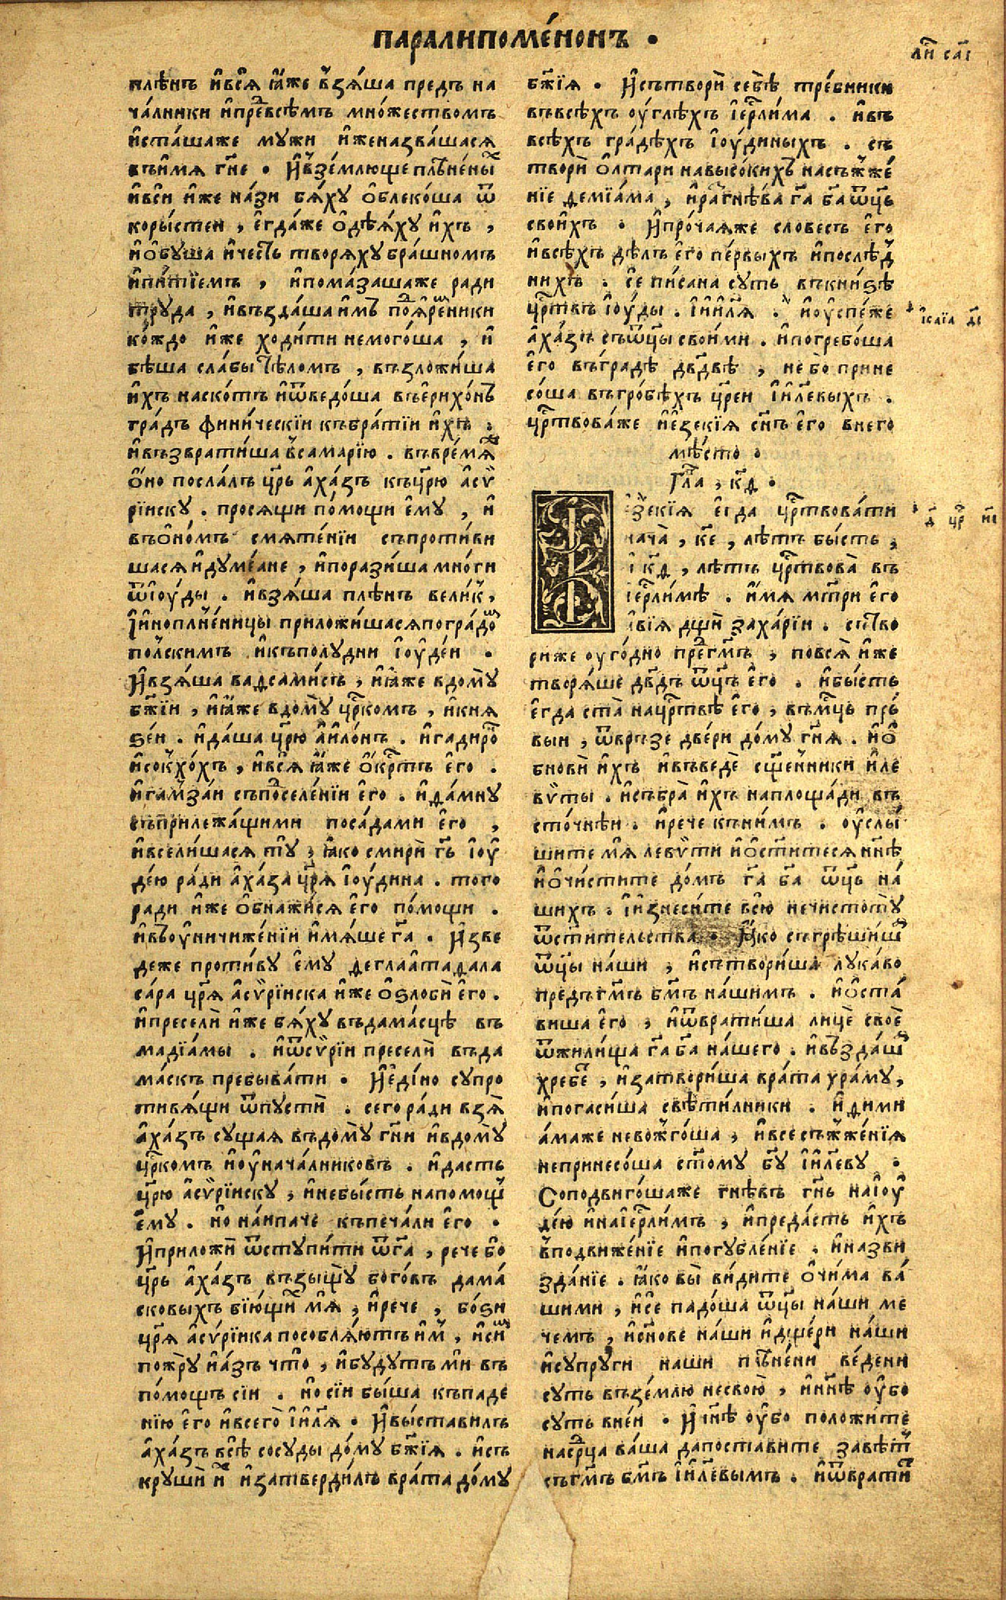 ПАРАЛИПОМЕ́НОНЪ ·
плѣ́нъ и҆всѧ̀ ꙗ҆́же взѧ́ша предъ на
ча́лники и҆пре́всѣмъ мно́жествомъ
и҆ста́шаже мꙋ́жи и҆́женазва́шасѧ
въи́мѧ гн҃е · И҆взе́млюще плѣне́ны
и҆вси̑ и҆́же на́зи бѧ́хꙋ ѡ҆блеко́ша ѿ
коры́стеи , е҆гда́же ѻ҆дѣѧ́хꙋ и҆́хъ ,
и҆ѻ҆бꙋ́ша и҆че́сть творѧ́хꙋ бра́шномъ
и҆питїе́мъ , и҆пома́зашаже ра́ди
трꙋда̀ , и҆възда́ша и҆́мъ поѧ҆ре́мники
ко́ждо и҆́же ходи́ти немого́ша , и҆
бѣ́ша сла́бы тѣ́ломъ , възложи́ша
и҆́хъ наско́тъ и҆ѿведо́ша въе҆рихо́нъ
гра́дъ финическїи къбра́тїи и҆́хъ .
и҆възврати́ша всамарі́ю . въвре́мѧ
ѻ҆́но посла́лъ цр҃ь а҆ха́зъ къцр҃ю а҆сѵ
рі́искꙋ . просѧ́щи по́мощи е҆мꙋ̀ , и҆
въѻ҆́номъ смѧте́нїи съпроти́ви
шасѧ и҆дꙋме́ане , и҆порази́ша мно́ги
ѿїю́ды . и҆взѧ́ша плѣ́нъ вели́к ,
І҆и҆ноплеме́ницы приложи́шасѧ погра́дѡ
по́лскимъ и҆къполꙋ́дни і҆ꙋде́и .
И҆взѧ́ша вадсами́съ , и҆ꙗ҆́же вдо́мꙋ
бж҃їи , и҆ꙗ҆́же вдо́мꙋ цр҃комъ , и҆кнѧ
ѕе́и . и҆да́ша цр҃ю а҆и҆ло́нъ . и҆гадирѡ
и҆сокхо́хъ , и҆всѧ̀ ꙗ҆́же о҆́крстъ е҆го̀ .
и҆гамза́и съпоселе́нїи е҆го̀ . и҆да́мнꙋ
съприлежа́щими поса́дами е҆го̀ ,
и҆всели́шасѧ тꙋ̀ , ꙗ҆́ко смирѝ гь҃ і҆ꙋ
де́ю ра́ди а҆ха́за цр҃ѧ і҆ꙋ́дина . того̀
ра́ди и҆́же ѻ҆бнажи́сѧ е҆го̀ по́мощи .
и҆въоу҆ничиже́нїи и҆мѧ́ше га҃ . И҆зве
де́же проти́вꙋ е҆мꙋ̀ деглаатадала
са́ра цр҃ѧ а҆сѵрі́иска и҆́же ѻ҆ѕло́би е҆го̀ .
и҆преселѝ и҆́же бѧ́хꙋ въдама́сцѣ въ
мадїа́мы . и҆ѿсѵрі́и преселѝ въда
ма́скъ пребыва́ти . И҆е҆ди́но сꙋпро
тивѧ́щи ѿпꙋстѝ . сего̀ ра́ди взѧ̀
а҆ха́зъ сꙋ́щаѧ въдо́мꙋ гн҃и и҆вдо́мꙋ
цр҃комъ и҆оу҆нача́лниковъ . и҆да́стъ
цр҃ю а҆сѵрі́искꙋ , и҆небы́сть напо́мощ
е҆мꙋ̀ . но̀ наи́паче къпеча́ли е҆го̀ .
И҆приложѝ ѿстꙋпи́ти ѿга҃ , рече́ бо
цр҃ь а҆ха́зъ възы́щꙋ бого́въ дама́
сковыхъ бїю́щи мѧ̀ , и҆речѐ , бо́ѕи
цр҃ѧ а҆сѵрі́ика пособлѧ́ютъ и҆́м , и҆си́мъ
пожрꙋ̀ и҆а҆́зъ что̀ , и҆бꙋ́дꙋтъ мѝ въ
по́мощъ сїи . но̀ сїи бы́ша къпаде
нїю е҆го̀ и҆всего̀ і҆и҃лѧ . И҆вы́ставилъ
а҆ха́зъ всѣ̀ сосꙋ́ды до́мꙋ бж҃їѧ . и҆съ
крꙋшѝ и҆̀ и҆затверди́лъ врата̀ до́мꙋ
бж҃їѧ . И҆сътворѝ себѣ̀ тре́бники
въвсѣ́хъ оу҆́глѣхъ і҆ер҃лима . и҆въ
всѣ́хъ гра́дѣхъ і҆ꙋ́диныхъ . съ
творѝ ѻ҆лтари̑ навысо́кихъ насъжже́
нїе демїа́ма , и҆рагнѣ́ва га҃ ба҃ ѿц҃ь
свои́хъ . И҆про́чаѧже слове́съ е҆го̀
и҆всѣ́хъ дѣ́лъ е҆го̀ пе́рвыхъ и҆послѣ́д
нихъ . се̑ пи́сана сꙋ́ть въкни́ѕѣ
цр҃твъ і҆ꙋ́ды . і҆и҆и҃лѧ . и҆оу҆спе́же
а҆ха́зъ съѿц҃ы свои́ми . и҆погребо́ша
е҆го̀ въгра́дѣ дв҃двѣ , не́бо прине
со́ша въгро́бѣхъ цр҃еи і҆и҃левыхъ .
цр҃твова́же и҆е҆зекі́ѧ сн҃ъ е҆го̀ внего
мѣ́сто .
Гла̀ , к҃д .
І҆Е҆зекі́ѧ е҆гда̀ цр҃твова́ти
нача̀ , к҃е , лѣ́тъ бы́сть ,
і҆ к҃д , лѣ́тъ цр҃твова̀ въ
і҆ер҃ли́мѣ . и҆́мѧ мт҃ри е҆го̀
а҆ві́ѧ дщѝ заха́рїи . сътво
ри́же оу҆го́дно пре́гм҃ъ , повсѧ̀ и҆́же
творѧ́ше дв҃дъ ѿц҃ъ е҆го̀ . и҆бы́сть
е҆гда̀ ста̀ нацр҃твѣ е҆го̀ , въмц҃ъ пер́
выи , ѿвръ́зе две́ри до́мꙋ гн҃ѧ . и҆ѻ
бновѝ и҆́хъ и҆въведѐ сщ҃енники и҆ле
вѵты . и҆събра̀ и҆́хъ напло́щади въ
сто́чнѣи . и҆речѐ къни́мъ . оу҆слы́
шите мѧ̀ левѵти и҆ѻ҆ст҃итесѧ нн҃ѣ
и҆ѻ҆чи́стите до́мъ га҃ ба҃ ѿц҃ъ на́
шихъ . і҆изнеси́те всю̀ нечистотꙋ̀
ѿст҃и́тельства . ꙗ҆́ко съгрѣши́ш
ѿц҃ы на́ши , и҆сътвори́ша лꙋка́во
предъгм҃ъ бм҃ъ на́шимъ . и҆ѻ҆ста́
виша е҆го̀ , и҆ѿврати́ша лицѐ своѐ
ѿжили́ща га҃ ба҃ на́шего . и҆възда́ш
хребѐ , и҆затвори́ша врата̀ хра́мꙋ ,
и҆погаси́ша свѣти́лники . и҆дими
а́маже невожго́ша , и҆всѐсъжже́нїѧ
непринесо́ша ст҃омꙋ бг҃ꙋ і҆и҃левꙋ .
Соподвиго́шаже гнѣ́въ гн҃ь наі҆ꙋ
де́ю и҆наі҆ер҃лимъ , и҆преда́стъ и҆́хъ
вподвиже́нїе и҆погꙋбле́нїе . и҆назви
зда́нїе . ꙗ҆́ко вы̀ ви́дите ѻ҆чи́ма ва́
шими , и҆се̑ падо́ша ѿц҃ы на́ши ме
че́мъ , и҆сн҃ове на́ши и҆дще́ри на́ши
и҆сꙋпрꙋ́ги на́ши плѣне́ни ве́дени
сꙋ́ть възе́млю несвою̀ , и҆нн҃ѣ оу҆́бо
сꙋ́ть вне́и . И҆нн҃ѣ оу҆́бо положи́те
насрц҃а ва́ша дапоста́вите завѣ́т
съгм҃ъ бм҃ъ і҆и҃левымъ . и҆ѿврати́т
і҆са́їа д҃і
д҃ цр҃ н҃і